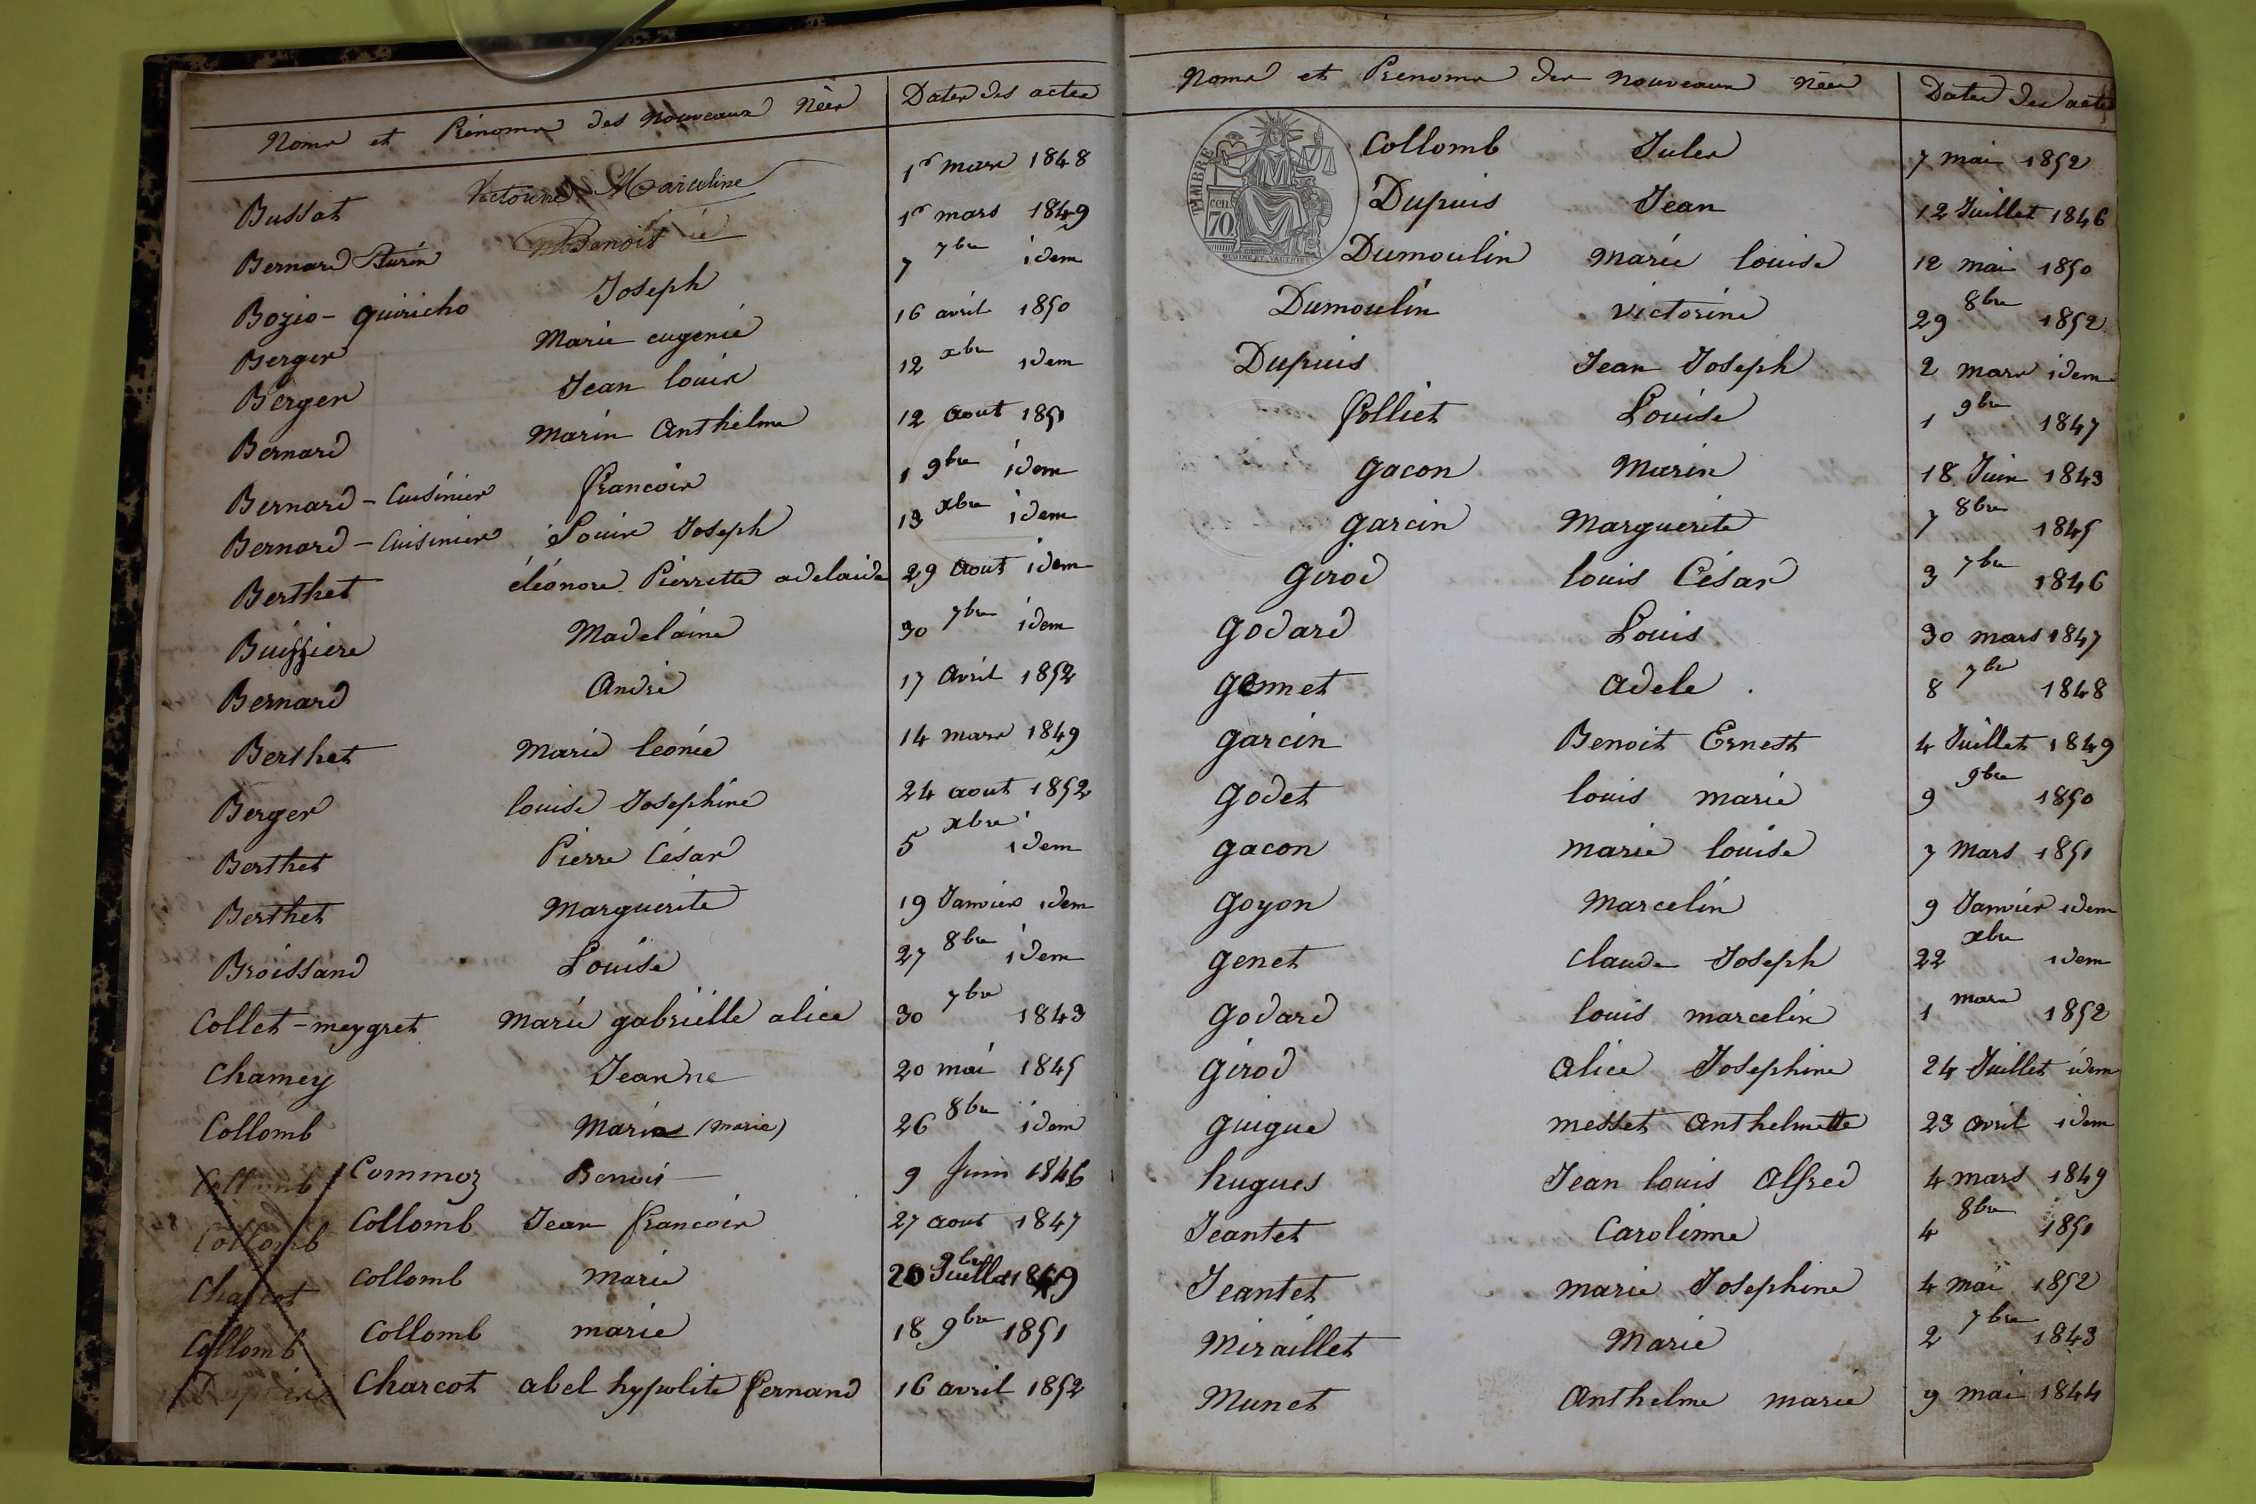 Noms et Prénoms des Nouveaux Nées Dates des actes
Bussat Victorine Marceline 1r mars 1848
Bernard Turin Benoit 1r mars 1849
Bozio-quiricho Joseph 7 7bre idem
Berger Marie eugenie 16 avril 1850
Berger Jean louis 12 xbre idem
Bernard Marin Anthelme 12 aout 1851
Bernard-Cuisinier francois 1 9bre idem
Bernard-Cuisinier Louis Joseph 13 xbre idem
Berthet éléonore Pierrette adelaide 29 aout idem
Buissiere Madelaine 30 7bre idem
Bernard André 17 avril 1852
Berthet Marie leonie 14 mars 1849
Berger louise Josephine 24 aout 1852
Berthet Pierre César 5 xbre idem
Berthet Marguerite 19 Janvier idem
Broissand Louise 27 8bre idem
Collet-meygret Marie gabrielle alice 30 7bre 1843
Chamey Jeanne 20 mai 1845
Collomb Marie (marie) 26 8bre idem
Collomb Commoz Benoit 9 Juin 1846
Collomb Collomb Jean francois 27 aout 1847
Charcot Collomb marie 20 1849
Collomb Collomb marie 18 9bre 1851
Charcot abel hypolite fernand 16 avril 1852
Noms et Prenoms des nouveaux Nées Dates des actes
TIMBRE
70 cen.
Collomb Jules 7 mai 1852
Dupuis Jean 12 Juillet 1846
Dumoulin Marie louise 12 mai 1850
Dumoulin victorine 29 8bre 1852
Dupuis Jean Joseph 2 mars idem
folliet Louise 1 9bre 1847
gacon Marin 18 Juin 1843
garcin Marguerite 7 8bre 1845
girod louis César 3 7bre 1846
godard Louis 30 mars 1847
gemet adele 8 7bre 1848
garcin Benoit Ernest 4 Juillet 1849
godet louis marie 9 9bre 1850
gacon marie louise 7 Mars 1851
goyon Marcelin 9 Janvier idem
genet claude Joseph 22 xbre idem
godard louis marcelin 1 mars 1852
girod alice Josephine 24 Juillet idem
guigue messet anthelmette 23 avril idem
hugues Jean louis alfred 4 mars 1849
Jeantet Carolinne 4 8bre 1851
Jeantet marie Josephine 4 mai 1852
Miraillet Marie 2 7bre 1843
Munet Anthelme marie 9 mai 1844